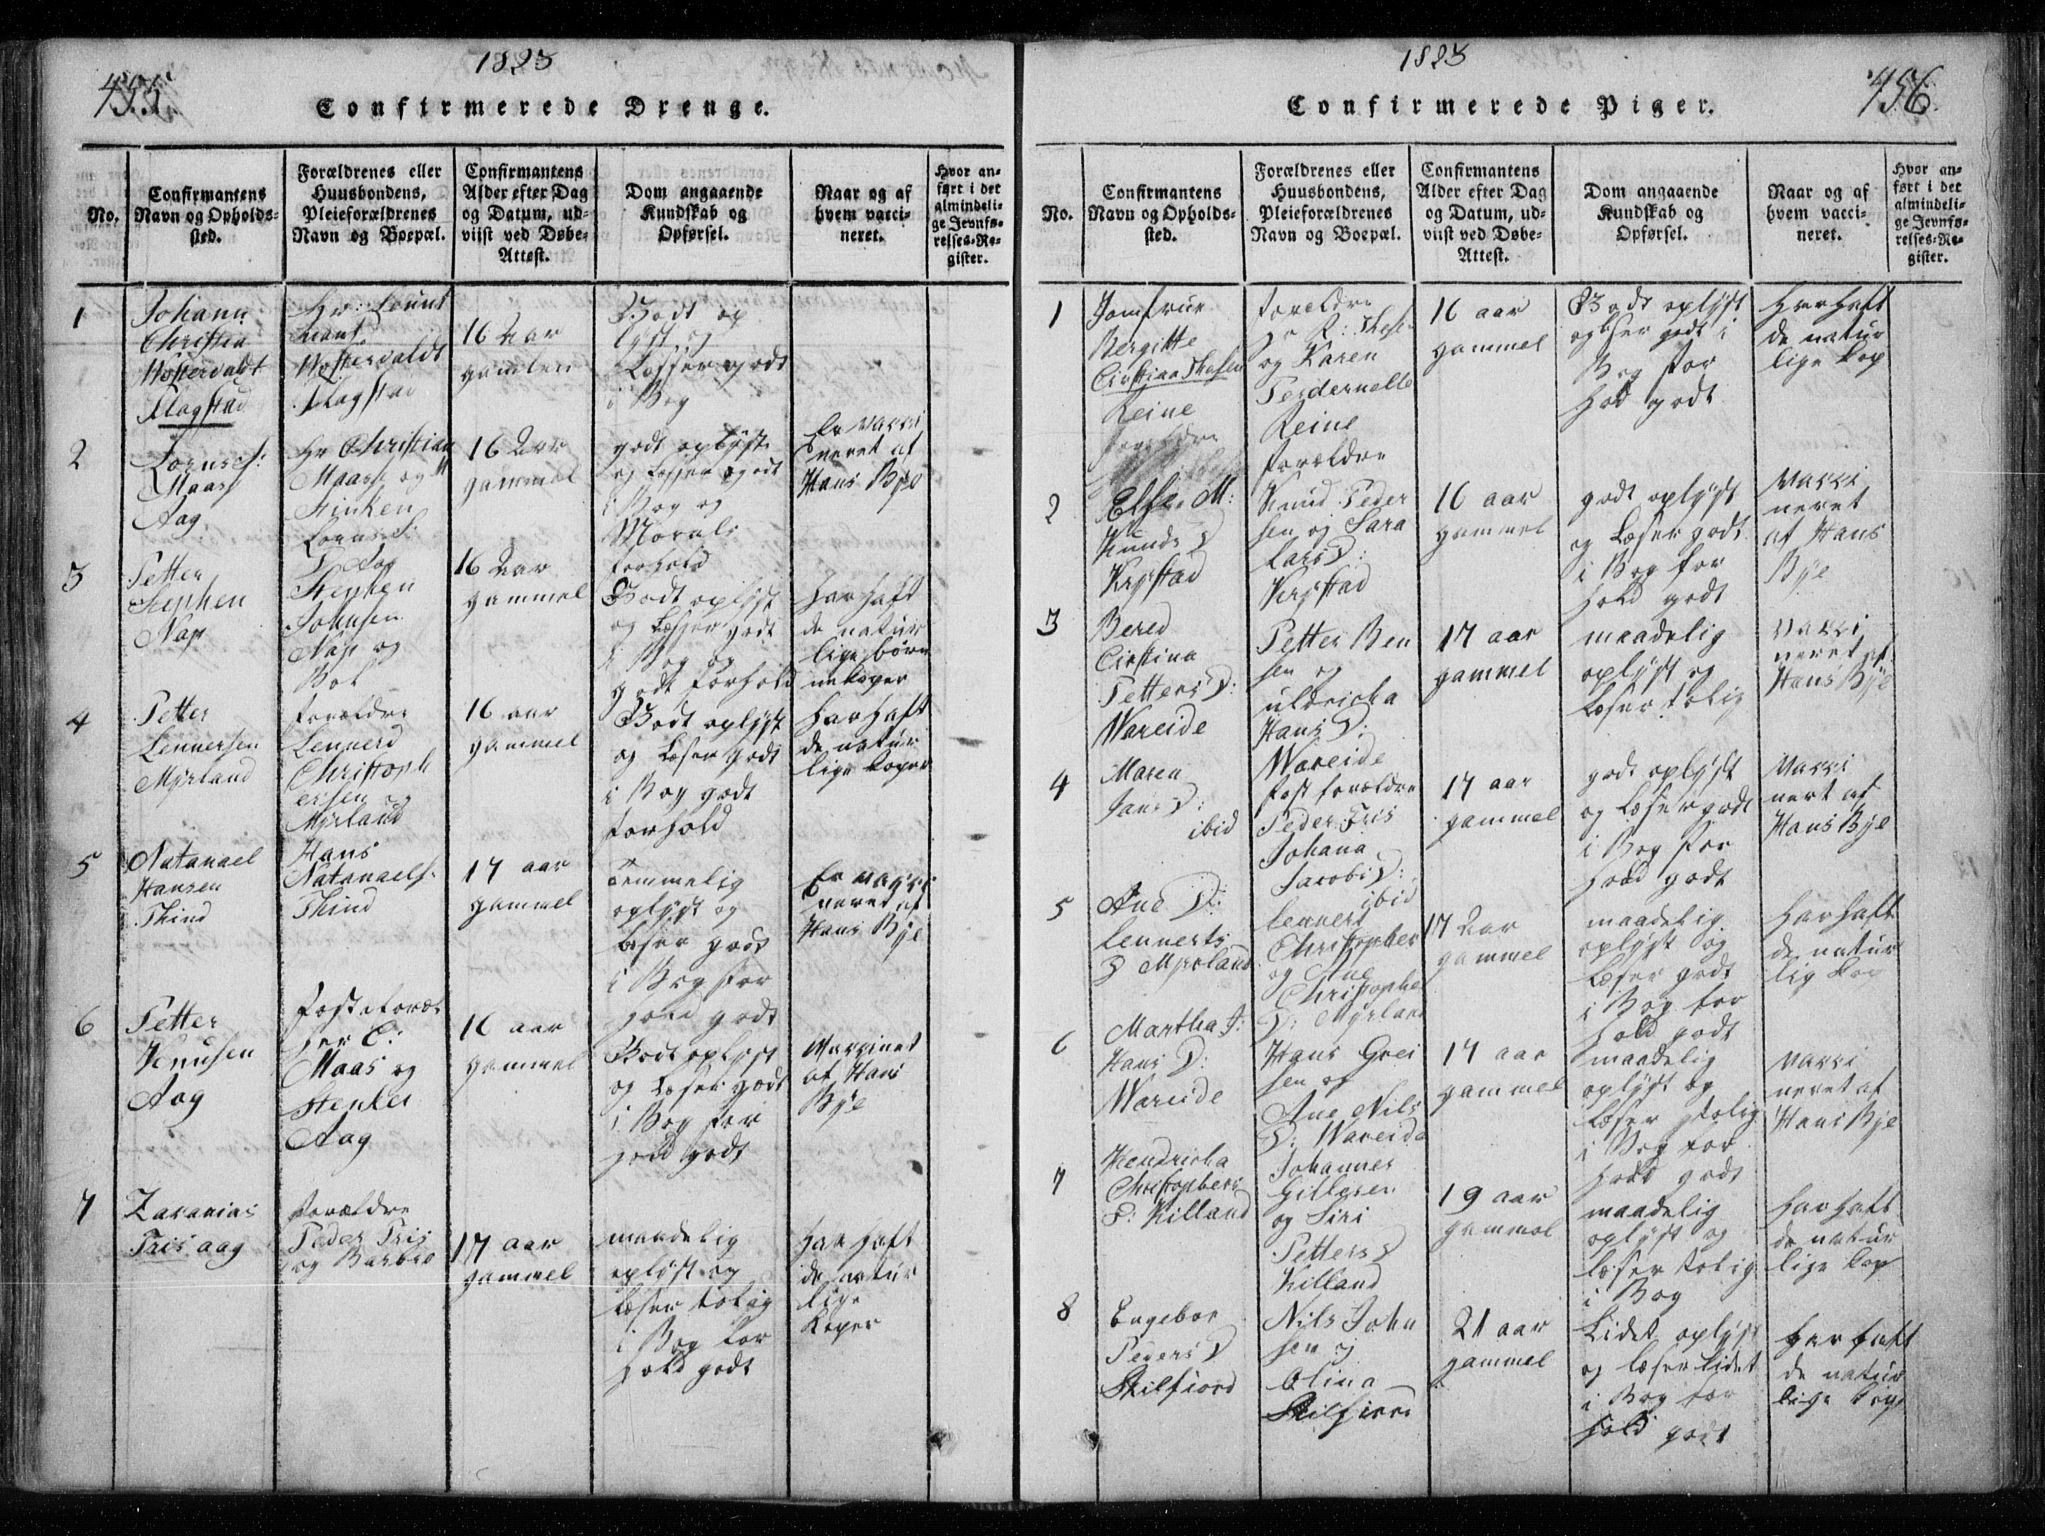 455.
1823
Confirmerede Drenge.
No.
Confirmantens
Navn og Opholds-
sted.
Forældrenes eller
Huusbondens,
Pleieforældrenes
Navn og Boepæl.
Confirmantens
Alder efter Dag
og Datum, ud-
viist ved Døbe-
Attest.
Dom angaaende
Kundskab og
Opførsel.
Naar og af
hvem vacci-
neret.
Hvor an-
ført i det
almindeli-
ge Jevnfø-
relses-Re-
gister.
1
Johann
Christen
Flagstad
Hr:
Flagstad
16 Aar
gamlen
Godt op
lyst og
Læsser godt
i Bog
2
Maas
Aag
Hr Christian
Maass og
16 Aar
gammel
godt oplyst
og Læsser godt
i Bog og
Morals
forhold
Er vacci
neret af
Hans Bye
3
Petter
Stephen
Nap
Stephen
Johnsen
Nap og
16 Aar
gammel
Godt oplyst
og Læsser godt
i Bog og
godt forhold
har haft
de natur
lige børne
kaaper
4
Petter
Lennersen
Myrland
forældre
Lennerd
Christoph
ersen og
Myrland
16 aar
gammel
Godt oplyst
og Læser godt
i Bog godt
forhold
har haft
de natur
lige koper
5
Natanael
Hansen
Thind
Hans
Natanaels:
Thind
17 aar
gammel
Temmelig
oplyst og
læser godt
i Bog for
hold godt
Er vacci
neret af
Hans Bye
6
Petter
Knusen
Aag
Herr C:
Maas og
Aag
16 aar
gammel
Godt oplyst
og Læser godt
i Bog for
hold godt
Vaccinet
af Hans
Bye
7
Zacarias
Fris aag
forældre
Peder Fris
og Barbro
17 aar
gammel
maadelig
oplyst og
læser tolig
i Bog for
hold godt
har haft
de natur
lige
koper
1823
456
Confirmerede Piger.
No.
Confirmantens
Navn og Opholds-
sted.
Forældrenes eller
Huusbondens,
Pleieforældrenes
Navn og Boepæl.
Confirmantens
Alder efter Dag
og Datum, ud-
viist ved Døbe-
Attest.
Dom angaaende
Kundskab og
Opførsel.
Naar og af
hvem vacci-
neret.
Hvor an-
ført i det
almindeli-
ge Jevnfø-
relses-Re-
gister.
1
Jomfrue
Bergitte
Reine
foreldre
og Karen
Reine
16 aar
gammel
Godt oplyst
og læser godt i
Bog for
hold godt
Har haft
de natur
lige kop
2
Else M:
Knuds D
forældre
Knud Peder
sen og Sara
Lars D:
16 aar
gammel
godt oplyst
og Læser godt
i Bog for
hold godt
Vacci
neret
af Hans
Bye
3
Bered
Cirstina
Petters D:
Wareide
Petter Ben
sen og
uldricka
Hans D:
Wareide
17 aar
gammel
maadelig
oplyst og
Læser tolig
vacci
neret af
Hans Bye
4
Maren
Jans D:
ibid
Fost forældre
Peder Fris
Johana
Jacobs D:
ibid
17 aar
gammel
godt oplyst
og Læser godt
i Bog for
hold godt
Vacci
nert af
Hans Bye
5
Ane D:
Lennerts
Lennert
Christopher
og Ane
Christophe
D: Myrland
17 Aar
gammel
maadelig
oplyst og
læser godt
i Bog for
hold godt
har haft
de natur
lig kop
6
Martha J:
Hans D:
Wareide
Hans Grei
sen og
Ane Nils
D: Wareide
17 aar
gammel
maadelig
oplyst og
læser tolig
i Bog for
hold godt
vacci
neret af
Hans Bye
7
Hendricka
Christophers
D: Killand
Johannes
Gillesen
og Siri
Petters D
Killand
19 aar
gammel
maadelig
oplyst og
læser tolig
i Bog
har haft
de natur
lige kop
8
Engebor
Peders D
Skilfiord
Nils John
sen og
Olina
Skilfiord
21 aar
gammel
Lidet oplyst
og læser lidet
i Bog for
hold godt
har haft
de natur
lige kop